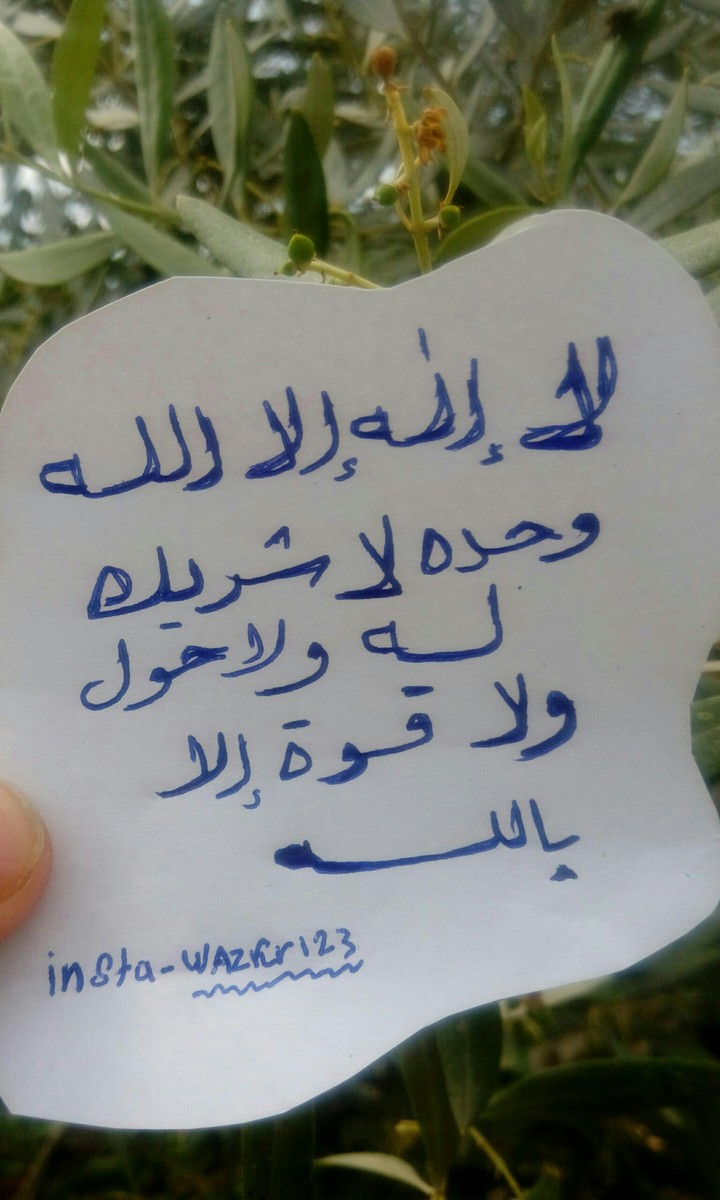 لا إله إلا الله
وحده لا شريك
له ولا حول
ولا قوة إلا
بالله